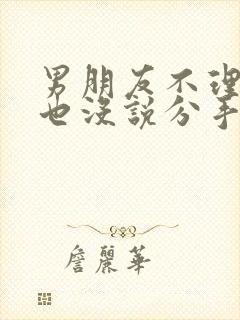 男朋友不理
也沒說分手
詹麗華